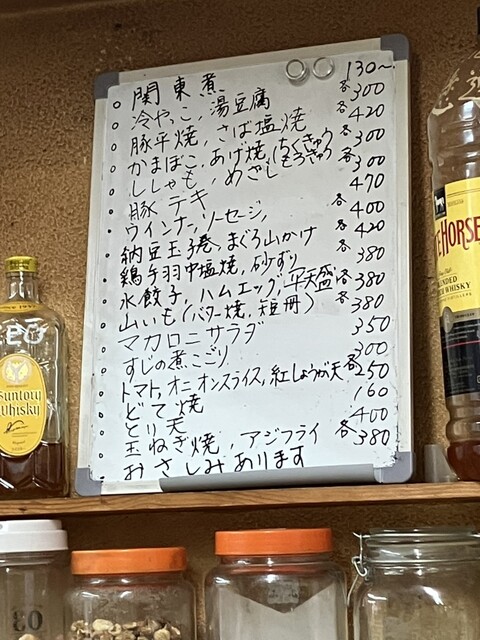 関東煮 130〜
冷やっこ, 湯豆腐 各300
豚平焼, さば塩焼 各420
かまぼこ, あげ焼, ちくきゅう 各300
もろきゅう
ししゃも, めざし 各300
豚テキ 470
ウインナーソーセージ, 各400
納豆玉子巻, まぐろ山かけ 各420
鶏手羽中塩焼, 砂ずり 380
水餃子, ハムエッグ, 平天盛 各380
山いも(バター焼, 短冊) 各380
マカロニサラダ 350
すじの煮こごり 300
トマト, オニオンスライス, 紅しょうが天 各250
どて焼 160
とり天 400
玉ねぎ焼, アジフライ 各380
おさしみあります
Suntory
Whisky
HORSE
WHISKY